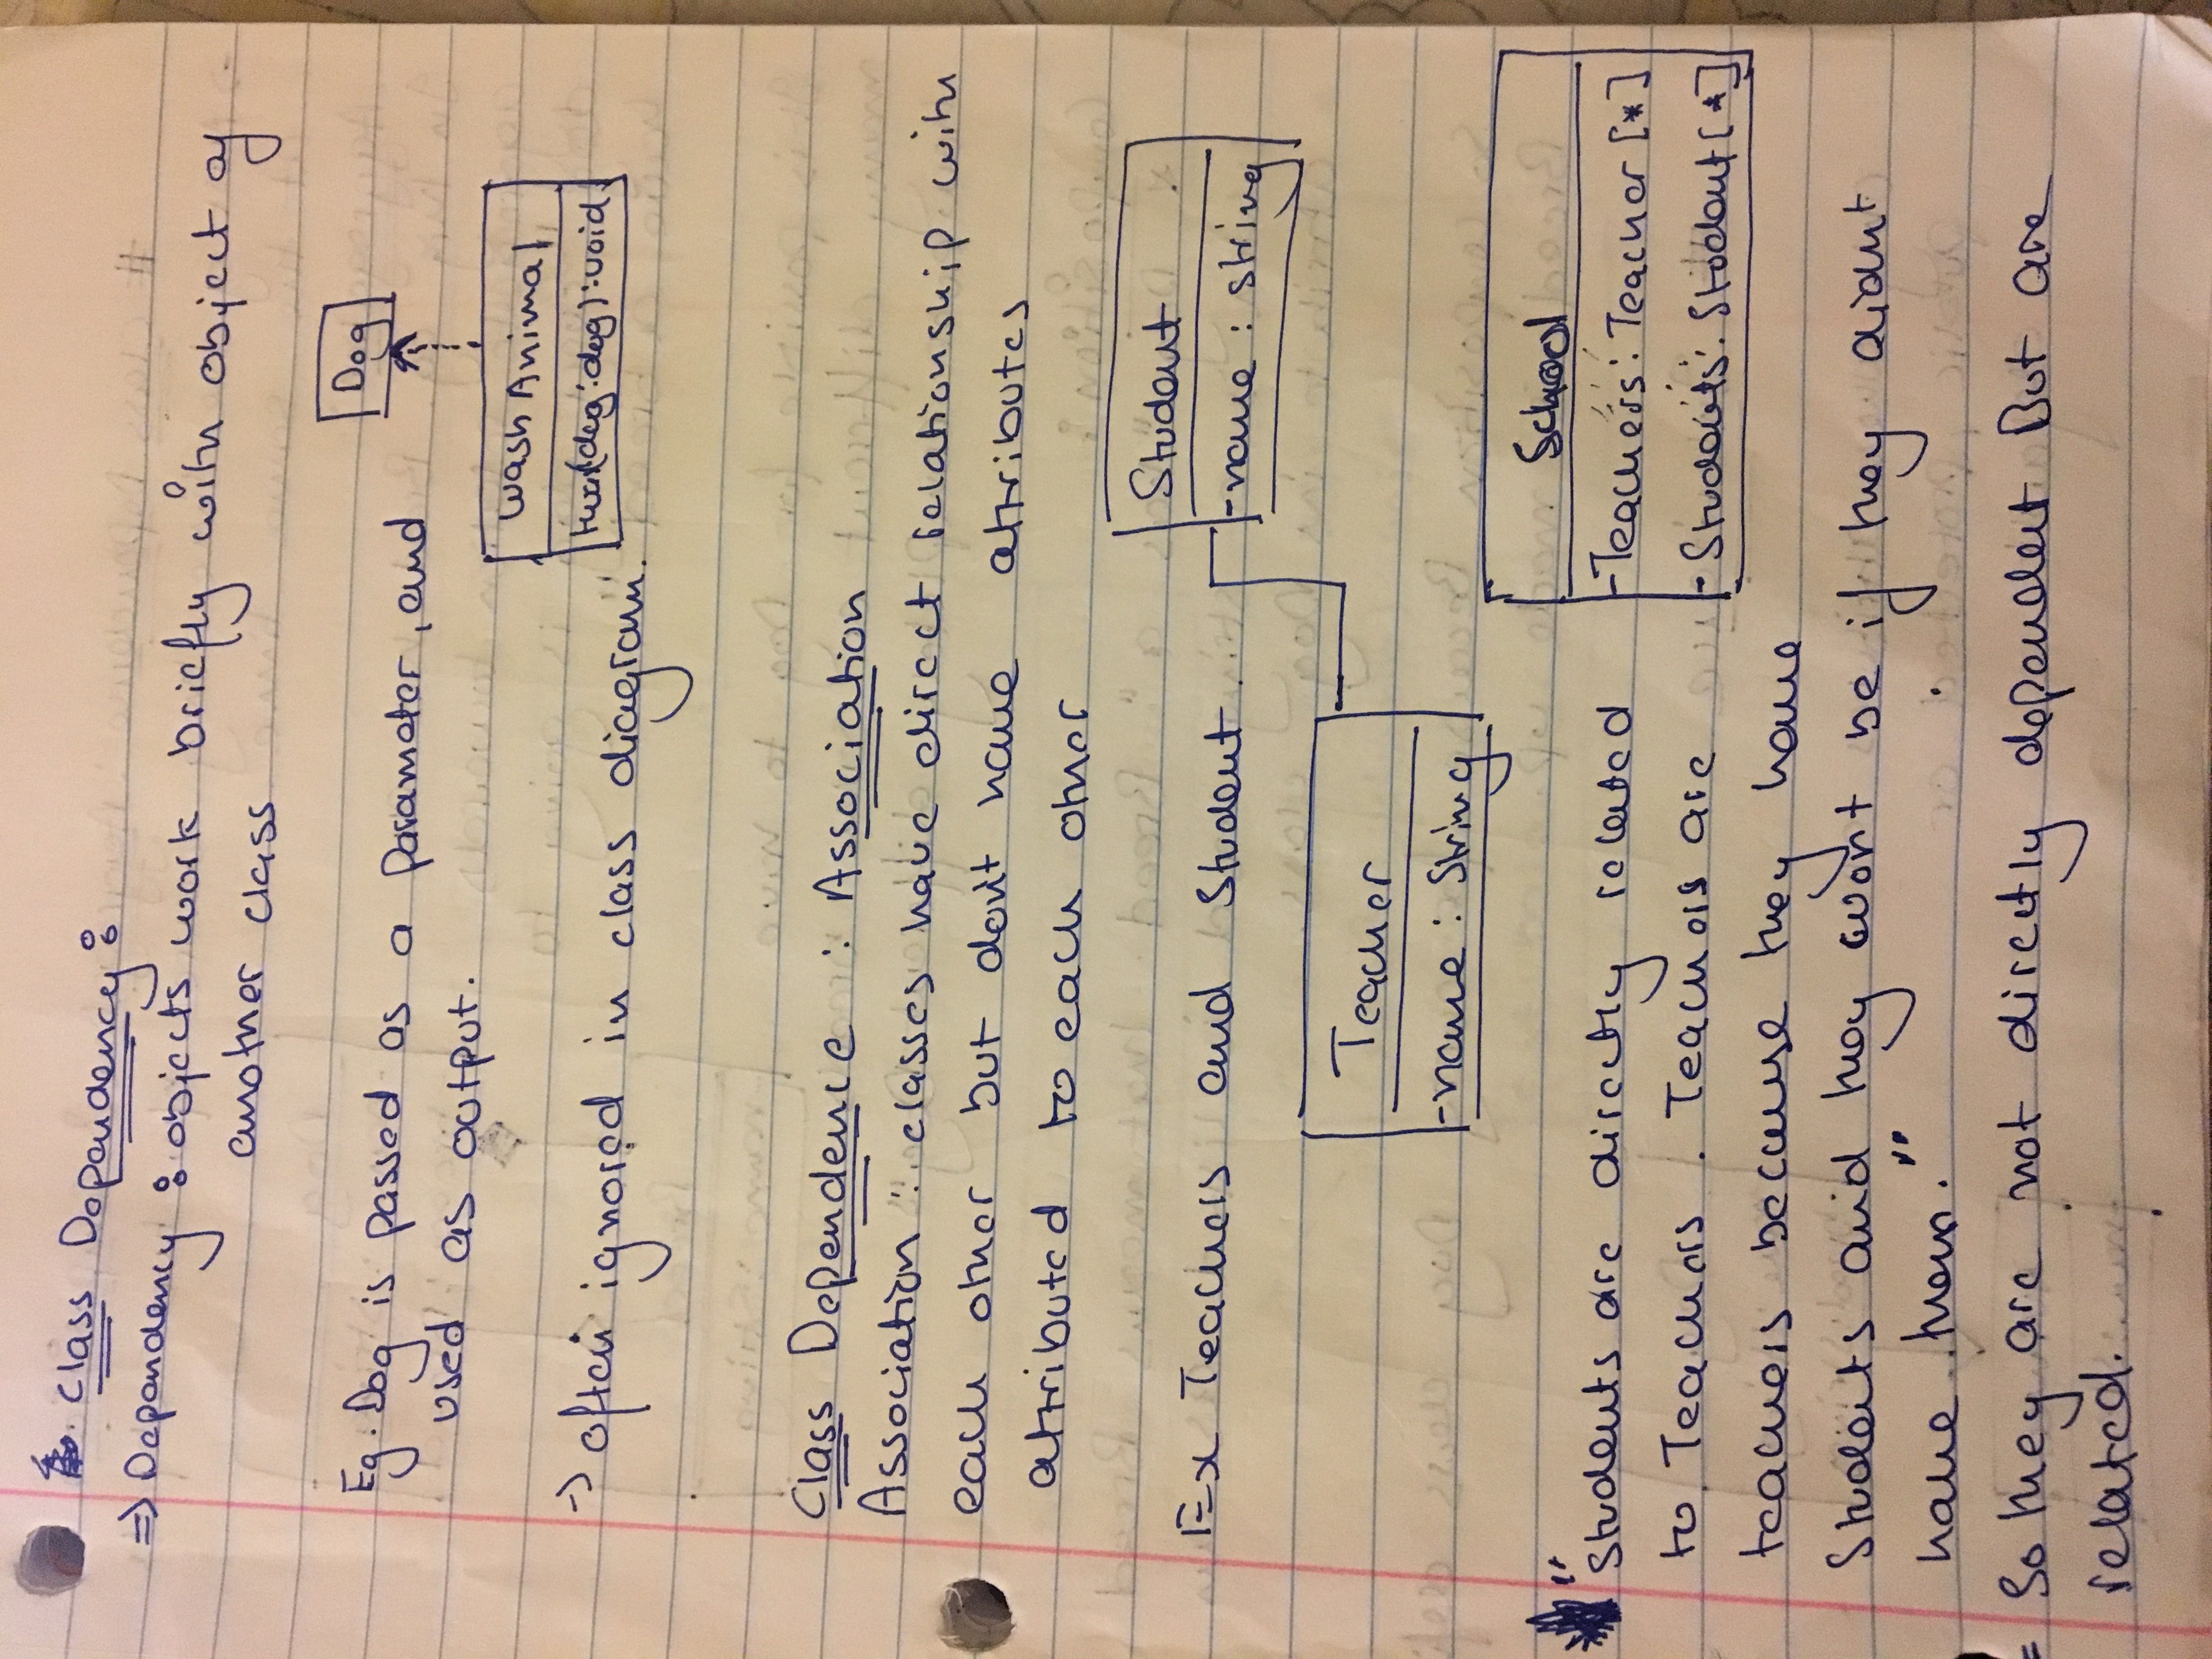 Class Dependency :
=> Dependency : objects work briefly with object of
another class
Dog
Eg. Dog is passed as a parameter, and
used as output.
Wash Animal
(dog : dog) : void
-> often ignored in class diagram.
Class Dependence : Association
Association : classes have direct relationship with
each other but don't have attributes
attributed to each other
Student
Ex Teachers and Student.
-name : string
Teacher
-name : String
School
"Students are directly related
-Teachers : Teacher [*]
to Teachers. Teachers are
-Students : Student [*]
teachers because they have
Students and they won't be if they didnt
have them."
= So they are not directly dependent But are
related.